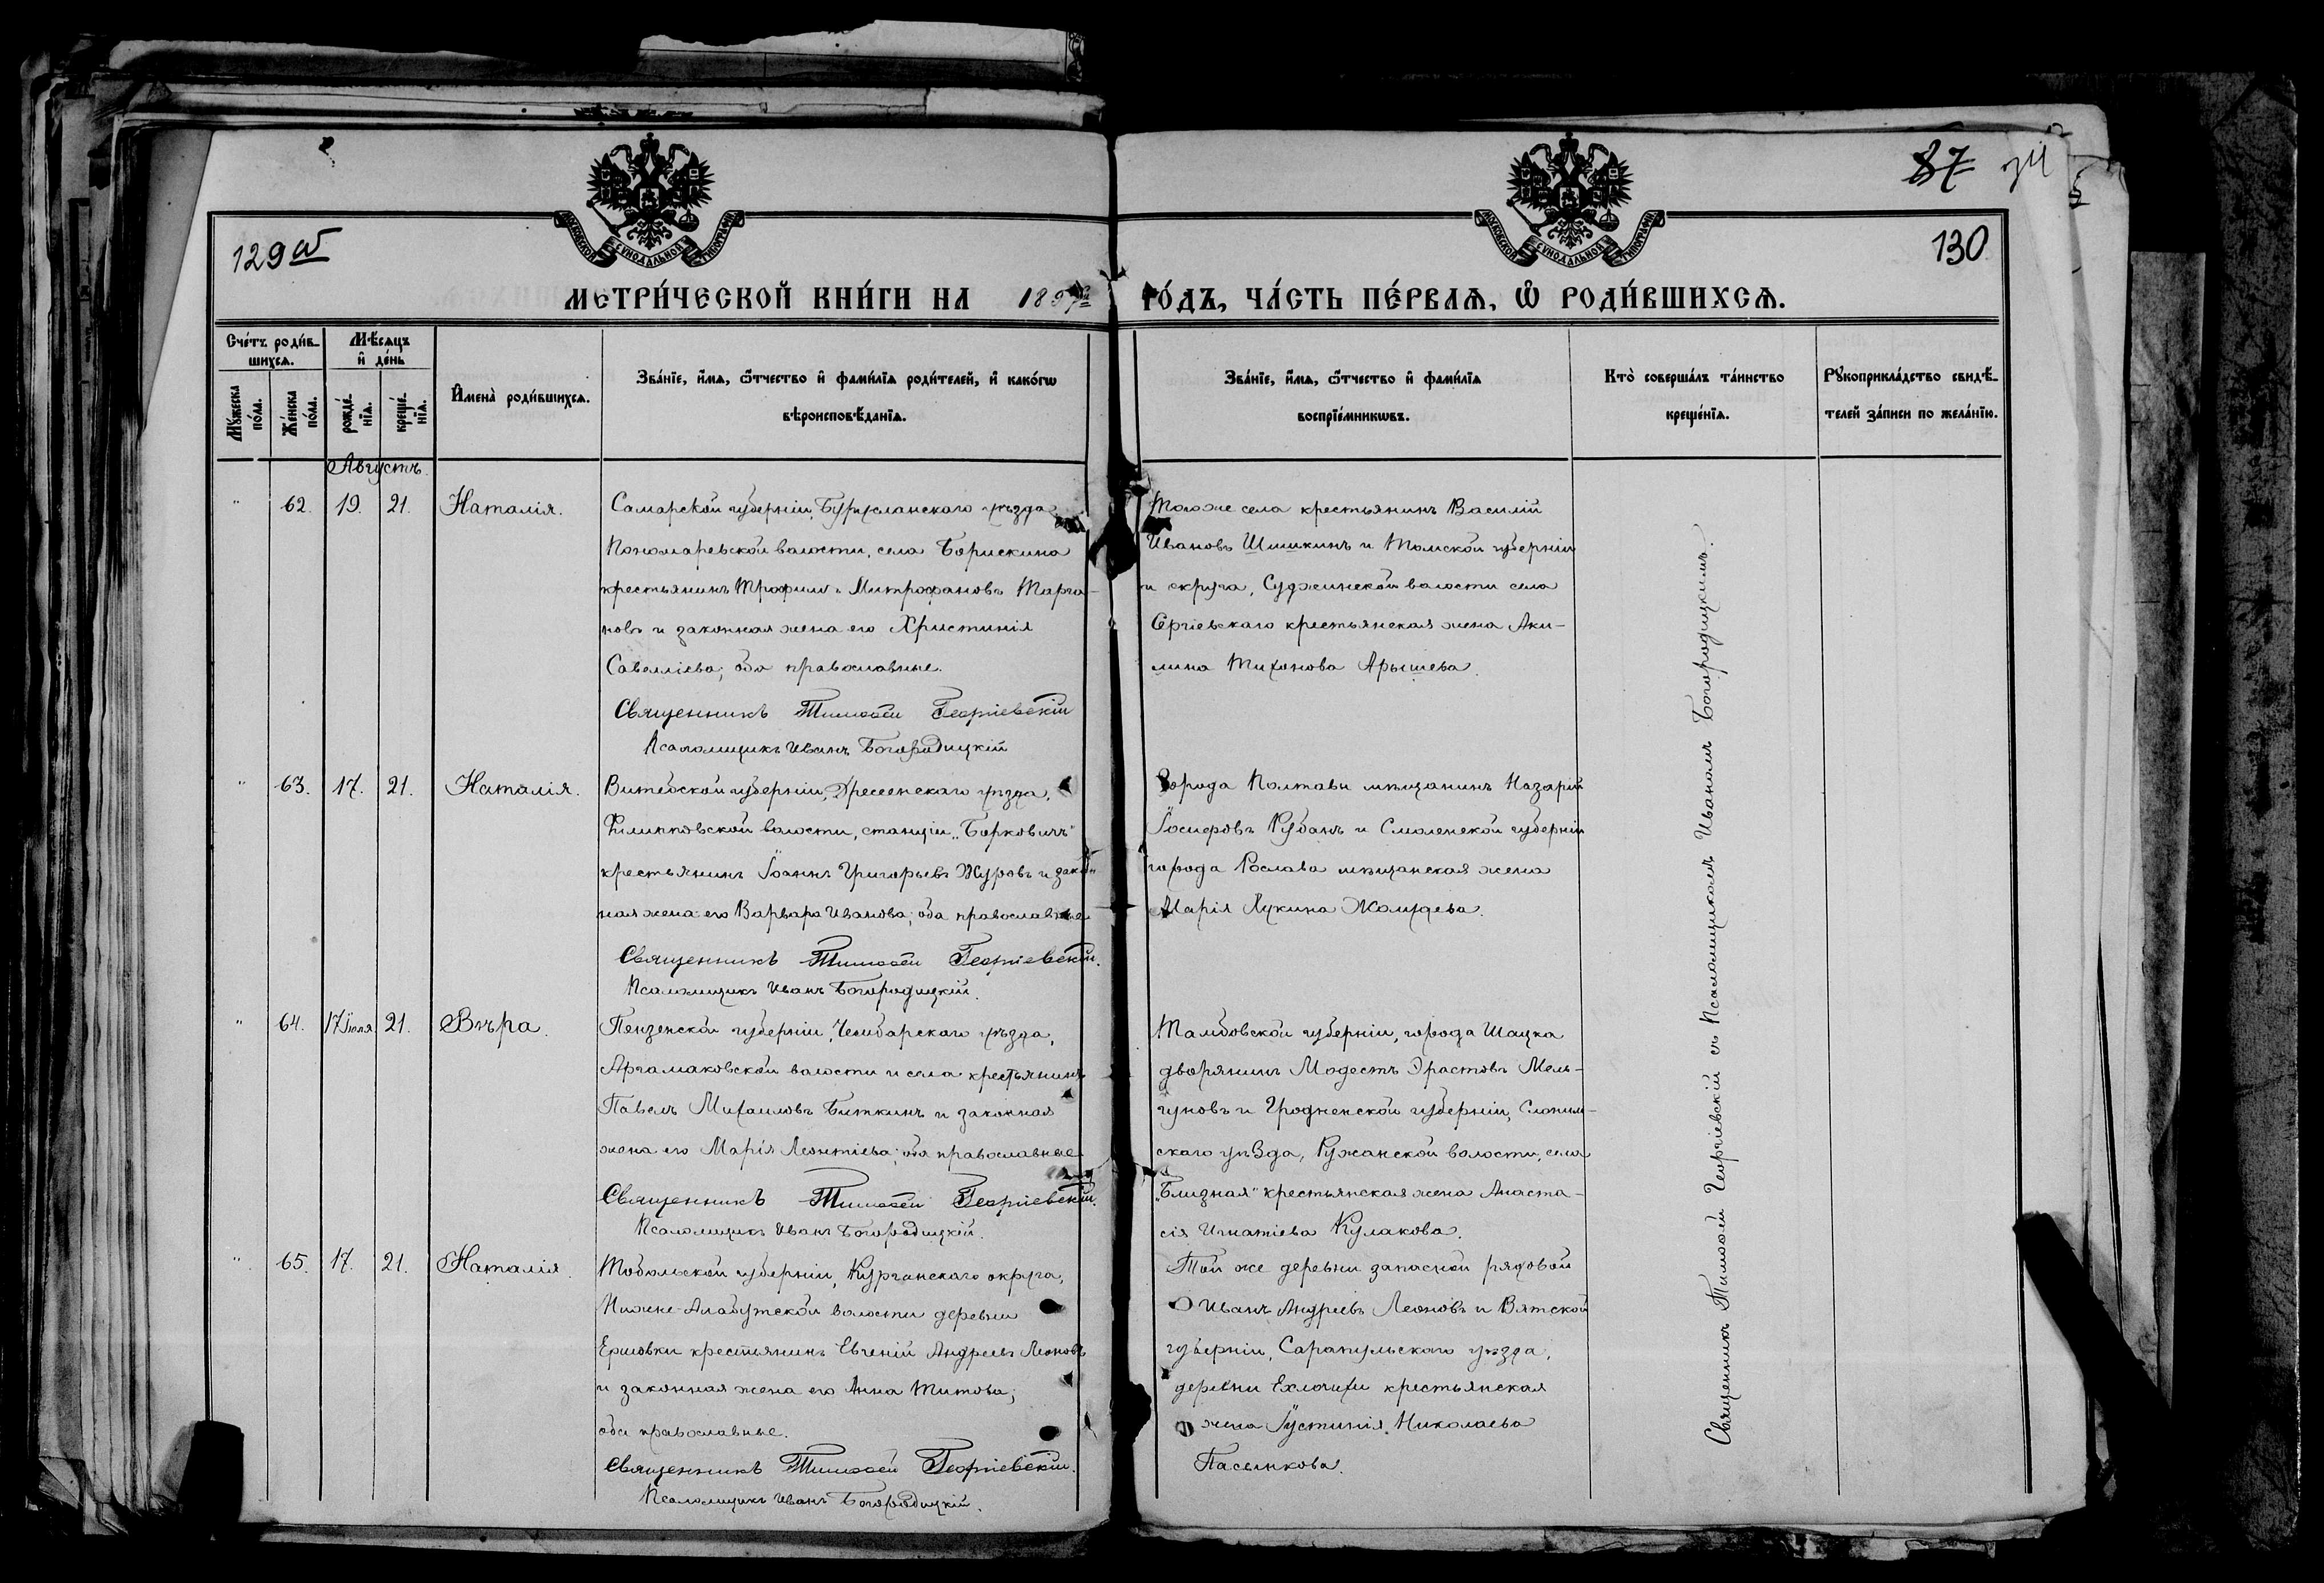 87
129 об
130
МОСКОВСКОЙ СѴНОДАЛЬНОЙ ТИПОГРАФІИ
МОСКОВСКОЙ СѴНОДАЛЬНОЙ ТИПОГРАФІИ
МЕТРИ́ЧЕСКОЙ КНИ́ГИ НА 1897 ГО́ДЪ, ЧА́СТЬ ПЕ́РВАѦ, Ѽ РОДИ́ВШИХСѦ.
Сче́тъ роди́вшихсѧ.
Мꙋ́жеска по́ла.
Же́нска по́ла.
Мѣ́сѧцъ и҆ де́нь
рожде́нїѧ.
креще́нїѧ.
И҆мена̀ роди́вшихсѧ.
Зва́нїе, и҆́мѧ, ѻ҆́тчество и҆ фами́лїѧ роди́телей, и҆ како́гѡ
вѣроисповѣ́данїѧ.
Зва́нїе, и҆́мѧ, ѻ҆́тчество и҆ фами́лїѧ
воспрїе́мникѡвъ.
Кто̀ соверша́лъ та́инство
креще́нїѧ.
Рꙋкоприкла́дство свидѣ́-
телей за́писи по жела́нїю.
Августъ.
" 62. 19. 21. Наталія.
Самарской губерніи, Бугурусланскаго уѣзда
Пономаревской волости, села Борискина
крестьянинъ Трофимъ Митрофановъ Тарга-
новъ и законная жена его Христинія
Савелліева; оба православные.
Священникъ Тимоѳей Георгіевскій
Псаломщикъ Иванъ Богородицкій
Тогоже села крестьянинъ Василій
Ивановъ Шишкинъ и Томской губерніи
и округа, Суджинской волости села
Сергіевскаго крестьянская жена Аки-
лина Тихонова Арышева.
" 63. 17. 21. Наталія.
Витебской губерніи, Дрессенскаго уѣзда,
волости, станціи "Борковичи"
крестьянинъ Іоаннъ Григорьевъ Журовъ и закон-
ная жена его Варвара Иванова; оба православные
Священникъ Тимоѳей Георгіевскій.
Псаломщикъ Иванъ Богородицкій.
Города Полтавы мѣщанинъ Назарій
Іосифовъ Кубанъ и Смоленской губерніи
города Рославля мѣщанская жена
Марія Лукина
" 64. 17 Іюля 21. Вѣра.
Пензенской губерніи, Чембарскаго уѣзда,
Аргамаковской волости и села крестьянинъ
Павелъ Михаиловъ Биткинъ и законная
жена его Марія Леонтіева; оба православные
Священникъ Тимоѳей Георгіевскій.
Псаломщикъ Иванъ Богородицкій.
Тамбовской губерніи, города Шацка
дворянинъ Модестъ Эрастовъ Мель-
гуновъ и Гродненской губерніи, Слоним-
скаго уѣзда, Ружанской волости, села
"Близная" крестьянская жена Анаста-
сія Игнатіева Кулакова.
" 65. 17. 21. Наталія.
Тобольской губерніи, Курганскаго округа,
Нижне-Алабугской волости деревни
Ершовки крестьянинъ Евгеній Андреевъ Леоновъ
и законная жена его Анна Титова;
оба православные.
Священникъ Тимоѳей Георгіевскій.
Псаломщикъ Иванъ Богородицкій.
Той же деревни запасной рядовой
Иванъ Андреевъ Леоновъ и Вятской
губерніи, Сарапульскаго уѣзда,
деревни крестьянская
жена Іустинія Николаева
Пасынкова.
Священникъ Тимоѳей Георгіевскій съ Псаломщикомъ Иваномъ Богородицкимъ.